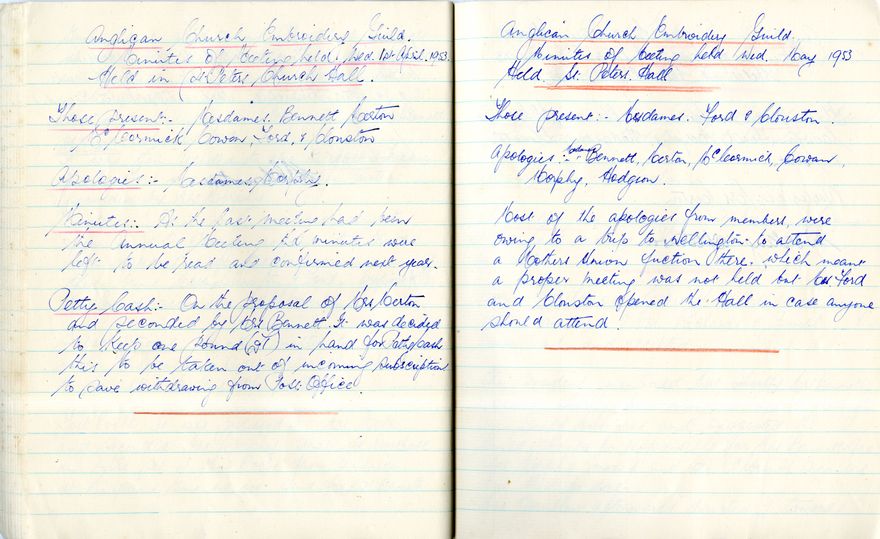 Anglican Church Embroidery Guild.
Minutes of Meeting held. Wed. 1st April. 1953.
Held in St Peters Church Hall.
Those present:- Mesdames. Bennett Merton
McCormick Cowan, Ford, & Clouston
Apologies:- Mesdames
Minutes:- As the last meeting had been
the annual Meeting the minutes were
left to be read and confirmed next year.
Petty Cash:- On the proposal of Mrs Merton
and seconded by Mrs Bennett it was decided
to keep one pound (£1) in hand for Petty Cash
this to be taken out of incoming subscription
to save withdrawing from Post Office.
Anglican Church Embroidery Guild.
Minutes of Meeting held Wed. May 1953
Held St. Peters. Hall
Those present:- Mesdames. Ford & Clouston.
Apologies:- Mesdames Bennett, Merton, McCormick, Cowan,
Morphy, Hodgson.
Most of the apologies from members, were
owing to a trip to Wellington to attend
a Mothers Union fuction there, which meant
a proper meeting was not held but Mrs Ford
and Clouston opened the Hall in case anyone
should attend.